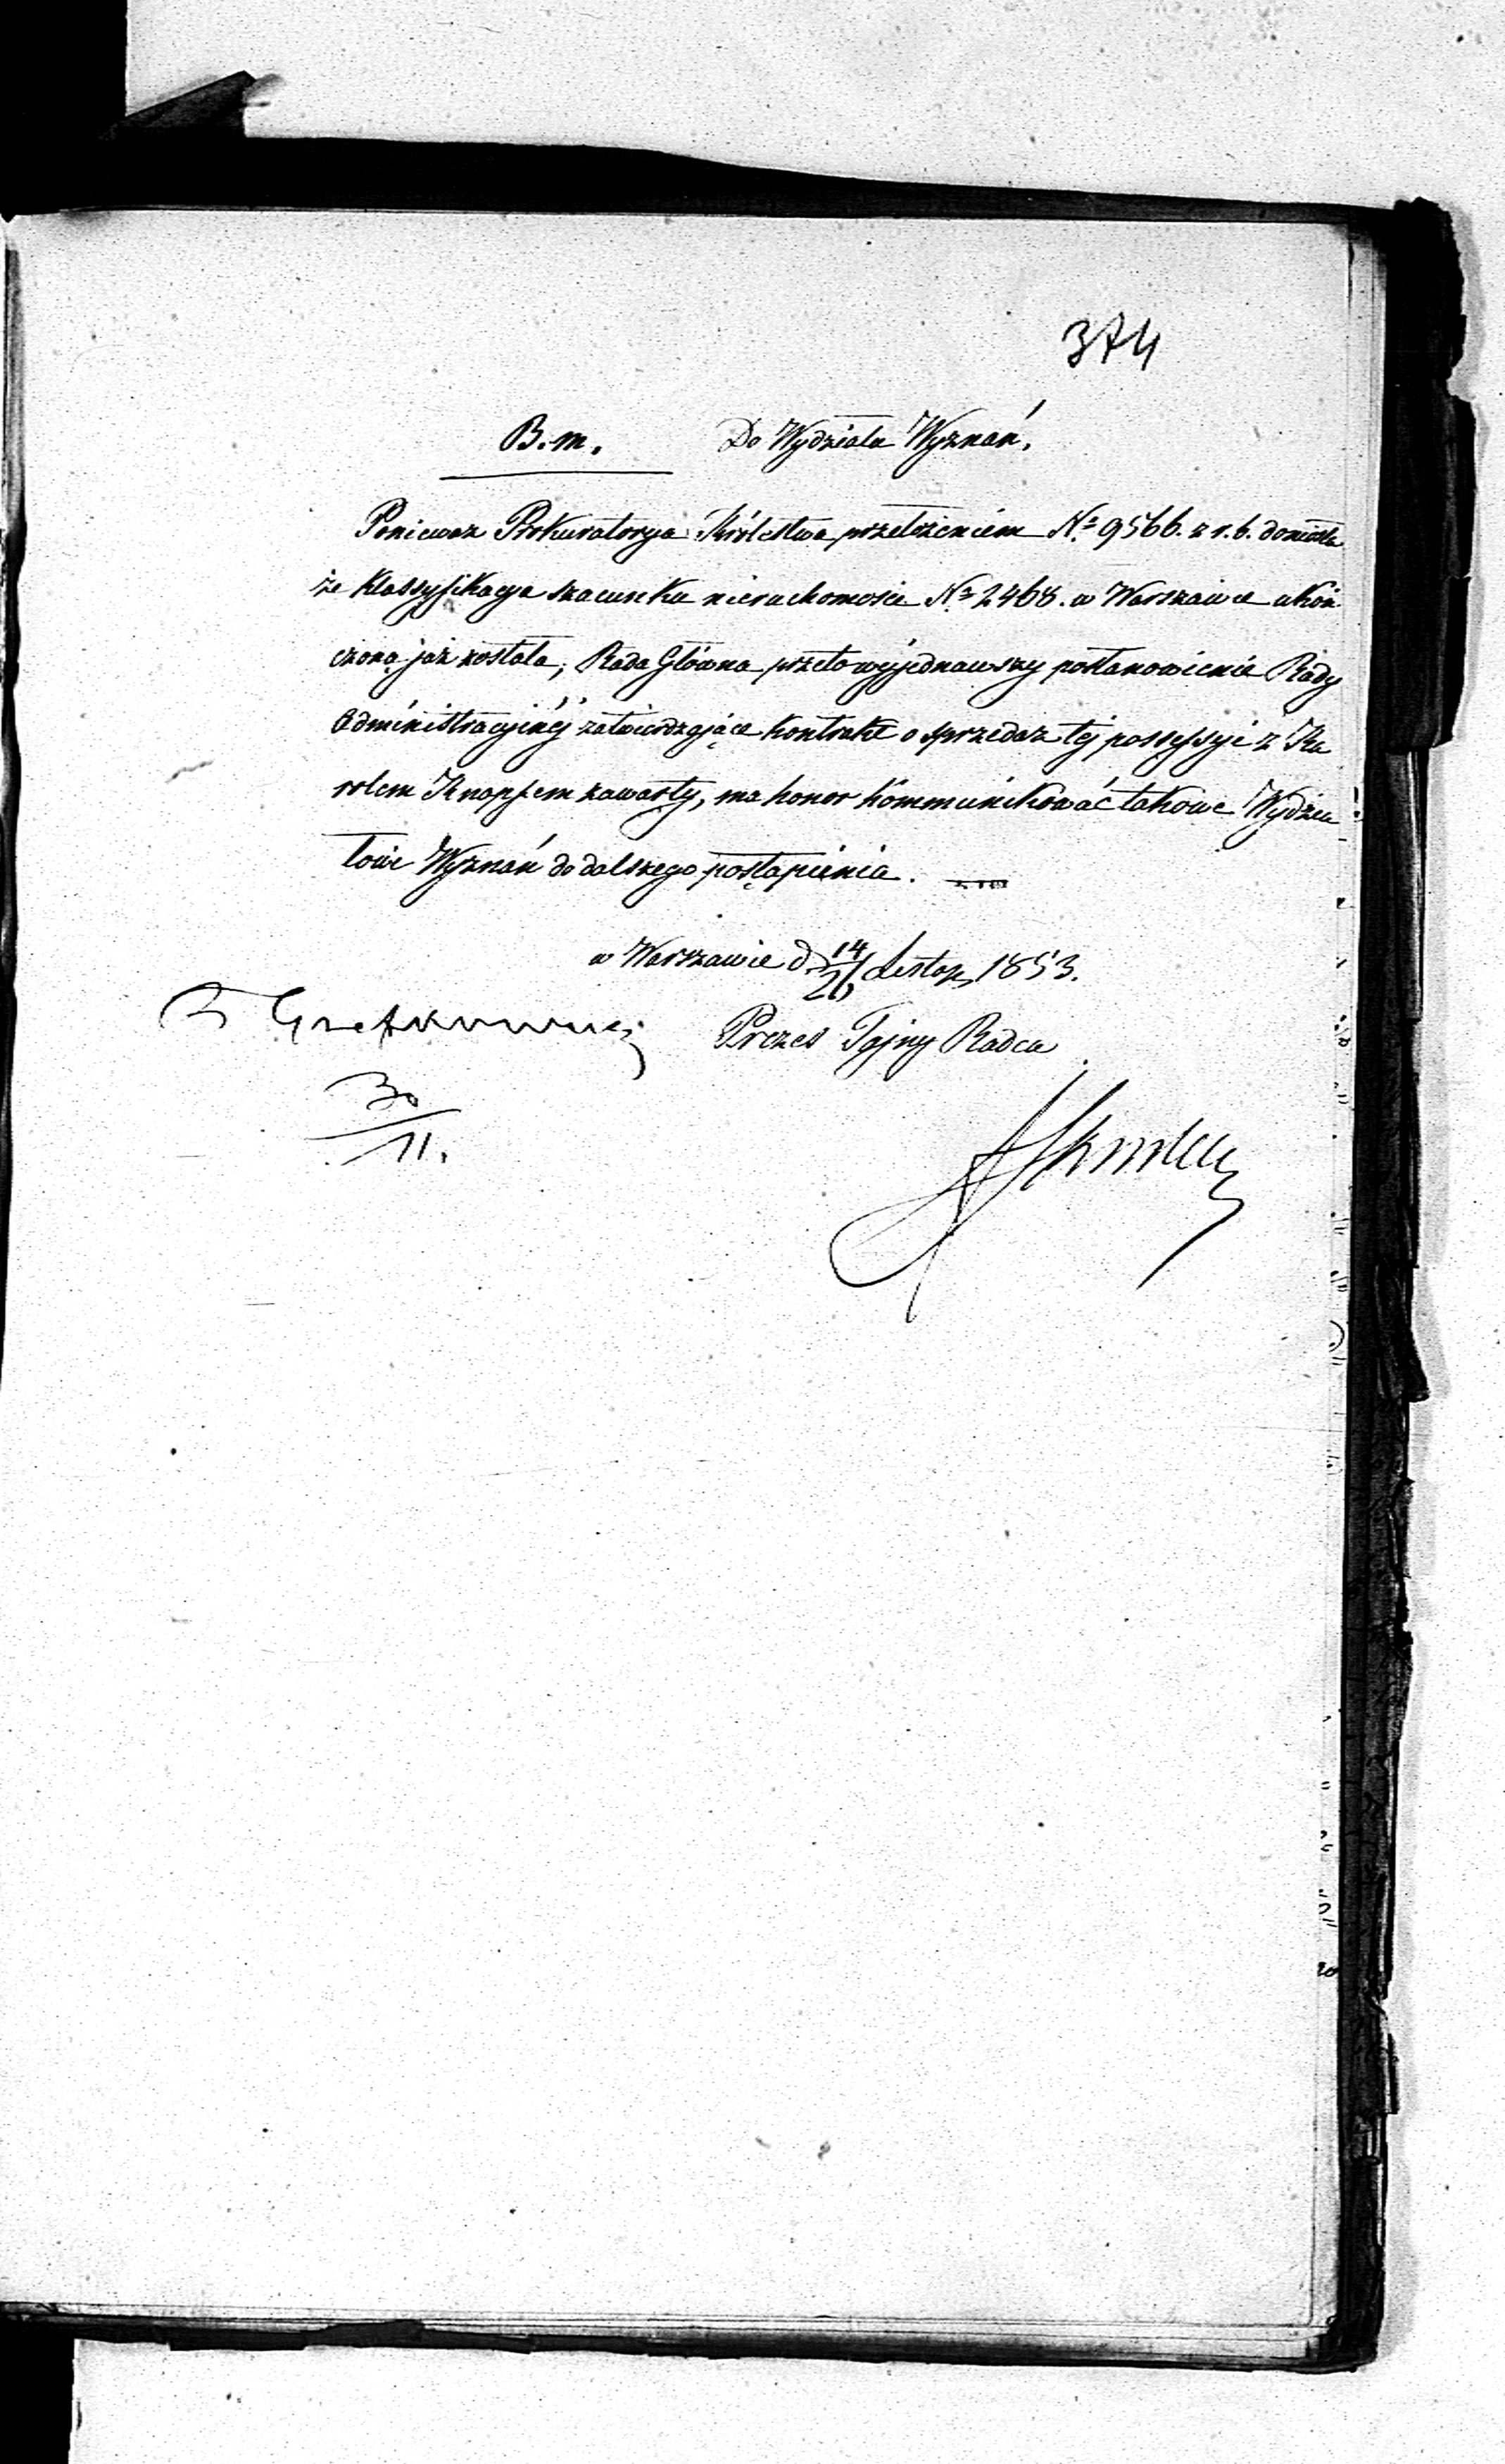 374
B. m. Do Wydziału Wyznań.
Ponieważ Prokuratorya Królestwa przełożeniem Nº 9566. z r. b. doniosła
że klassyfikacya szacunku nieruchomości Nº 2468. w Warszawie ukoń
czoną już została, Rada Główna przeto wyjednawszy postanowienie Rady
Administracyjnéj zatwierdzające kontrakt o sprzedaż téj possessyi z Ka
rolem Knopfem zawarty, ma honor kommunikować takowe Wydzia
łowi Wyznań do dalszego postąpienia.
w Warszawie d. 14/26 Listop. 1853.
Prezes Tajny Radca
30/11.